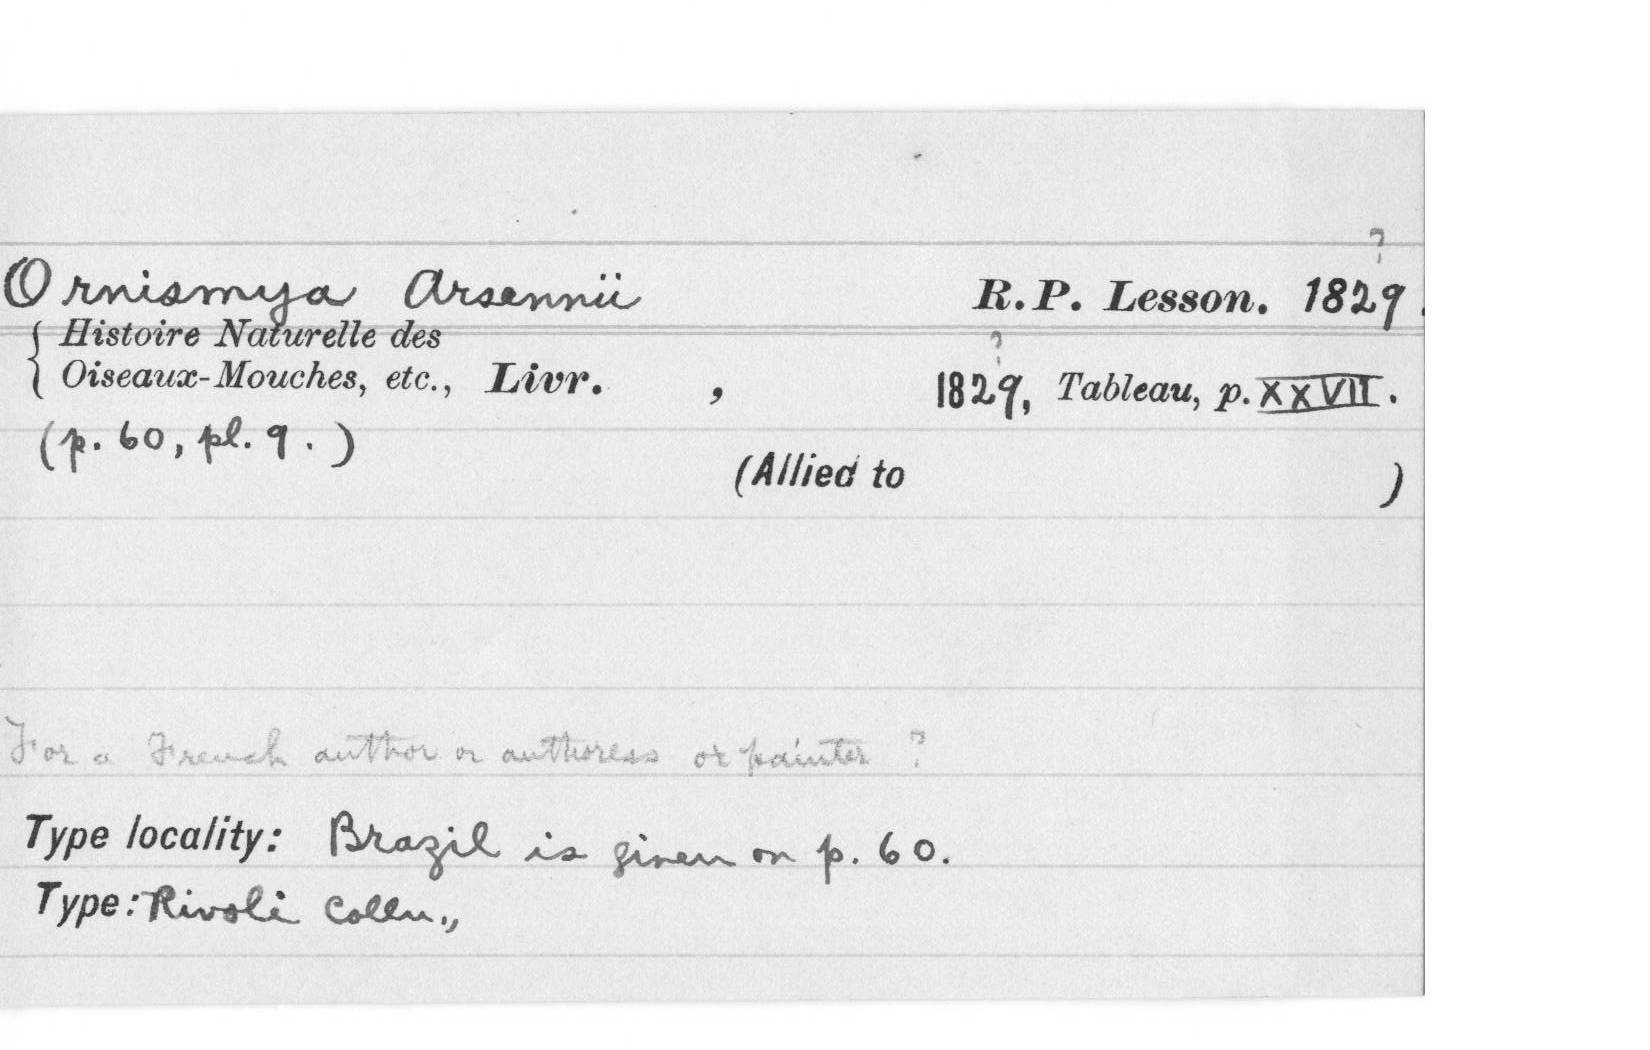 ?
Ornismya Arsennii R.P. Lesson. 1829.
{ Histoire Naturelle des
Oiseaux-Mouches, etc., Livr. , 1829, Tableau, p. XXVII.
?
(p. 60, pl. 9.)
(Allied to )
For a French author or authoress or painter ?
Type locality: Brazil is given on p. 60.
Type: Rivoli Colln.,